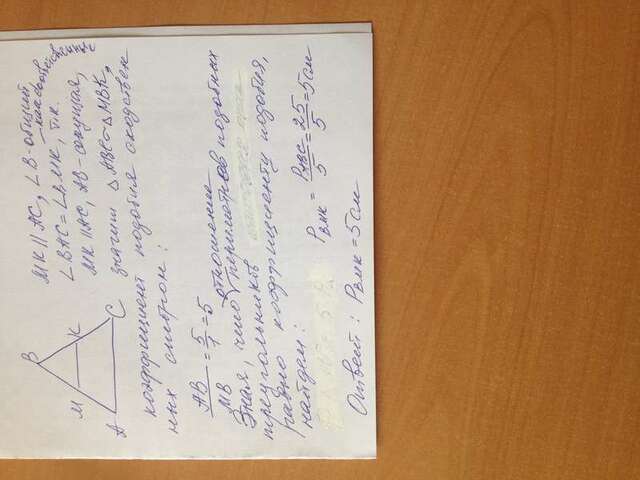 B
M
K
A
C
MK || AC, ∠B-общий,
∠BAC = ∠BMK, т.к.
MK || AC, AB-секущая,
значит △ABC ~ △MBK,
коэффициент подобия сходствен
ных сторон:
AB/MB = 5/1 = 5
Зная, что отношение периметров подобных
треугольников
равно коэффициенту подобия,
найдем:
P вмк = P ABC/5 = 25/5 = 5 см
Ответ: P вмк = 5 см